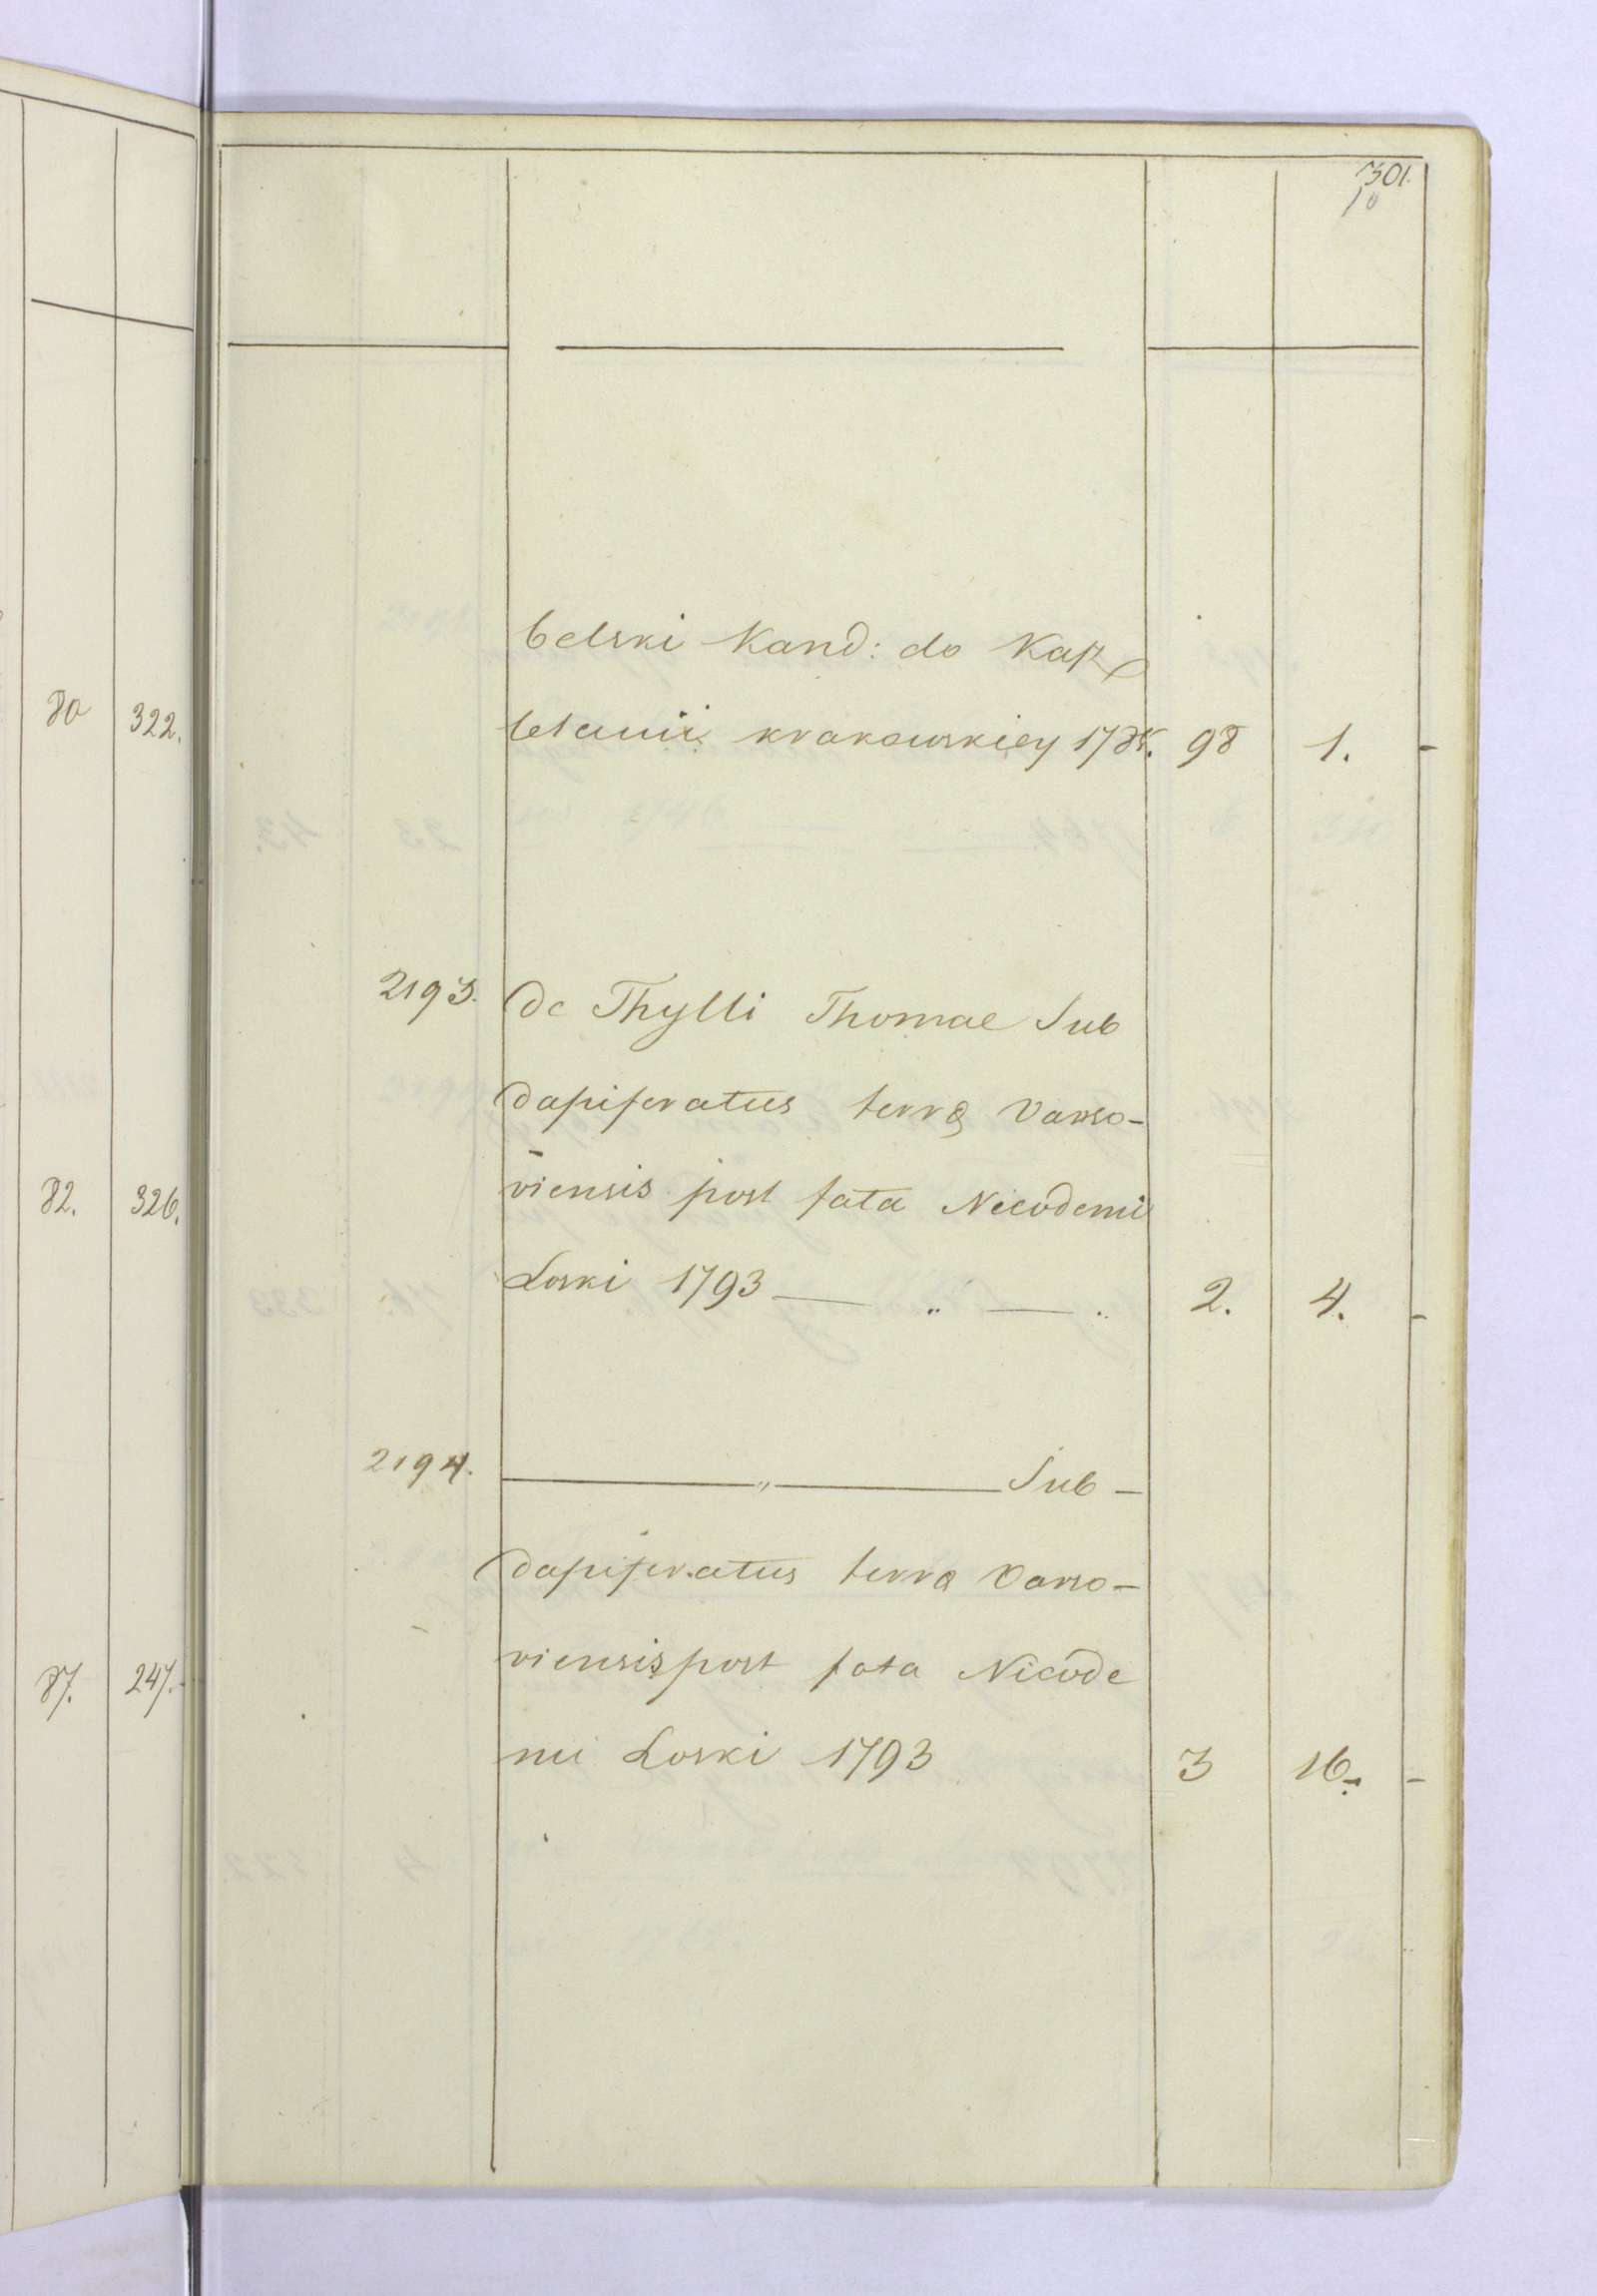 301.
10
80 322.
belski Kand: do Kasz
telanii krakowskiey 178 98 1. -
2193. de Thylli Thomae Sub
dapiferatus terrę Varso-
82. 326.
viensis post fata Nicodemi
Loski 1793 — " — " 2. 4. -
2194. — " — Sub -
dapiferatus terra Varso-
87. 247.
viensis post fata Nicode
mi Loski 1793 3 16. -